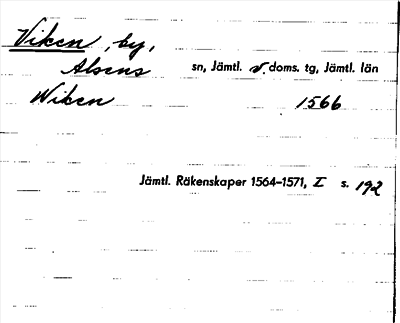 Viken, by,
Alsens sn, Jämtl. v. doms. tg, Jämtl. län
Wiken 1566
Jämtl. Räkenskaper 1564–1571, I s. 192